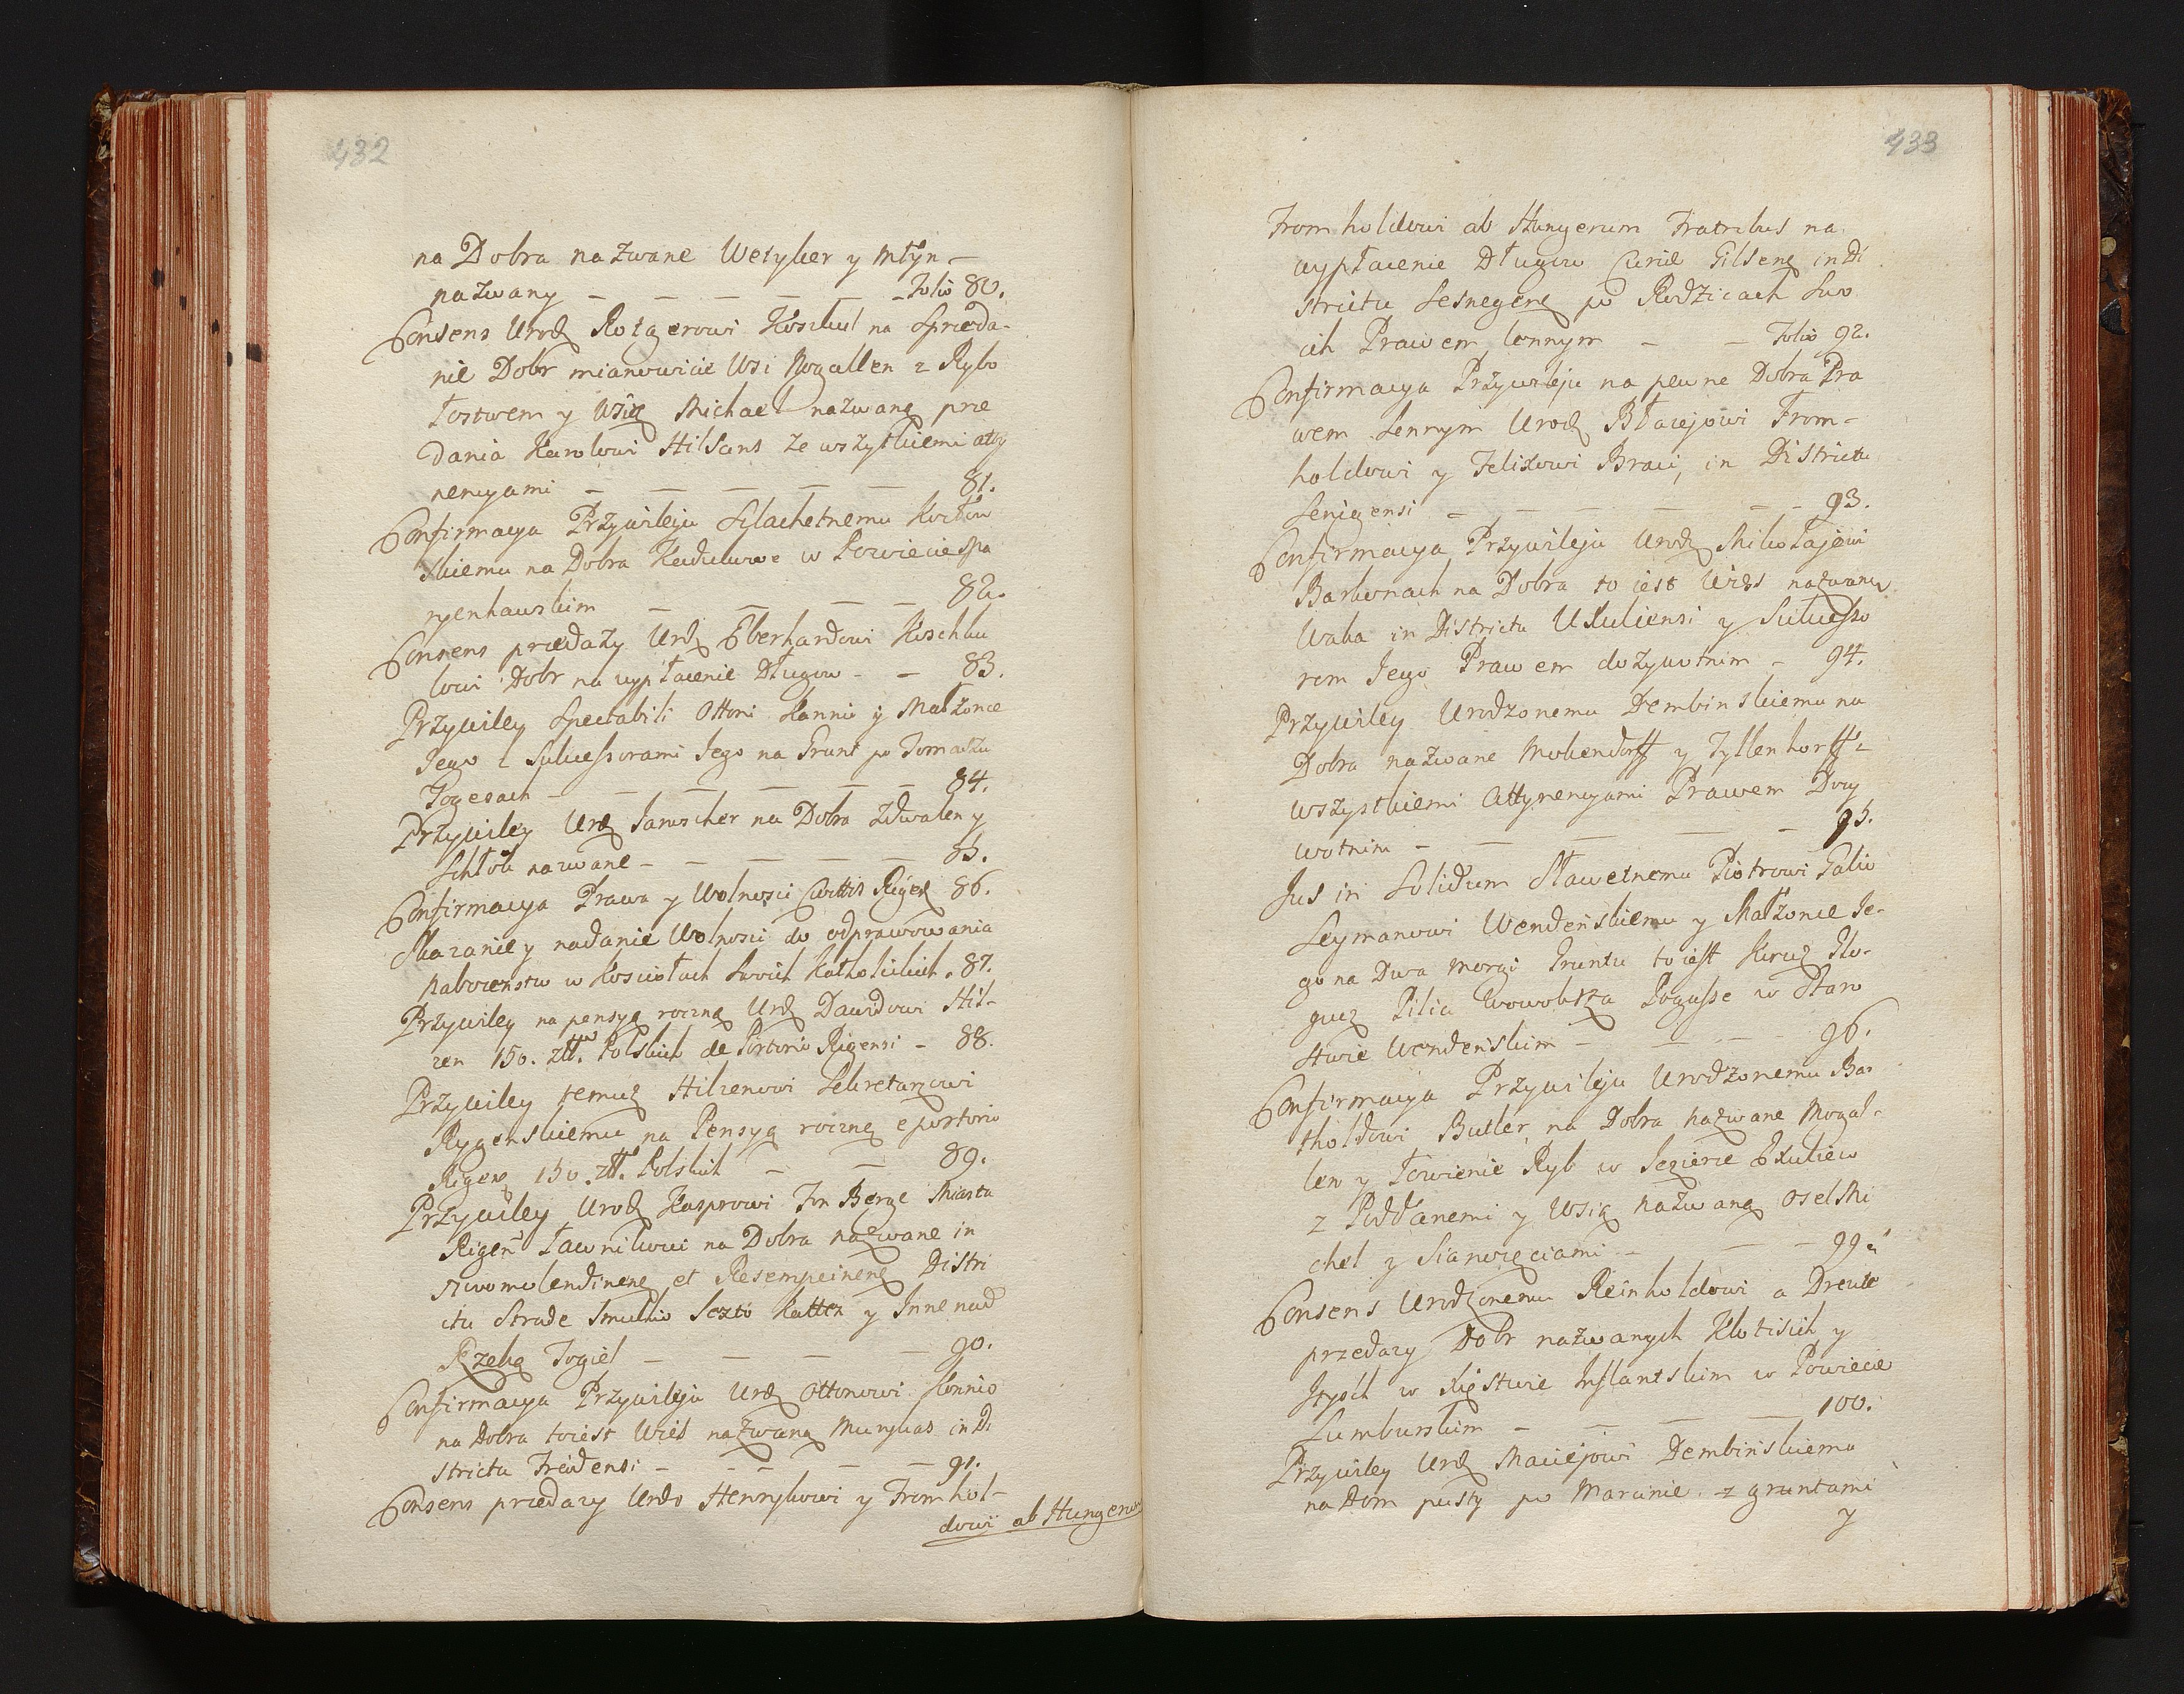 432
na Dobra nazwane Wesyber y Młyn –
nazwany – – – – – Folio 80.
Consens Urodz Rotgerowi Koschul na Sprzeda-
nie Dobr mianowicie Wsi Nogallen z Rybo
łostwem y Wsią Michael nazwaną prze
dania Karolowi Hilsans ze wszystkiemi atty
nencyami – – – – – 81.
Confirmacya Przywileju Szlachetnemu Kozłow
skiemu na Dobra w Powiecie Spa
rgenhauskim – – – – 82.
Consens przedaży Urdz Eberhardowi Koschku
lowi Dobr na wypłacenie Długow – – 83.
Przywiley Spectabili Ottoni Kannio y Małżonce
Jego z Sukcessorami Jego na Grunt po Tomaszu
Gogesach – – – – – – 84.
Przywiley Urdz Jamscher na Dobra Zdwalen y
Schłok nazwane – – – – – 85.
Confirmacya Prawa y Wolnosci Civitatis Rigen 86.
Skazanie y nadanie Wolnosci do odprawowania
naborenstw w Kosciołach Swoich Katholickich. 87.
Przywiley na pensyą roczną Urdz Dawidowi Hil-
zen 150. złł. Polskich de Portorio Rigensi – 88.
Przywiley temuz Hilzenowi Sekretarzowi
Rygenskiemu na Pensyą roczną e portorio
Rigen 150. złł. Polskich – – 89.
Przywiley Urodz Kasprowi Fon Berge Miasta
Rigen Ławnikowi na Dobra nazwane in
et Distri
ctu Strade Smulkio Sezto Katten y Inne nad
Rzeką Togiel – – – – 90.
Confirmacya Przywileju Urdz Ottonowi Kannio
na Dobra to iest Wieś nazwaną Murykas in Di
strictu Treidensi – – – – – 91.
Consens przedazy Urdo Henrykowi y Fromhol-
dowi ab Hungerw
433
Fromholdowi ab Hungerum Fratribus na
wypłacenie Długow Curiæ Gilsenę in Di
strictu Sesnegenę po Rodzicach Swo
ich Prawem lennym – – Folio 92.
Confirmacya Przywileju na pewne Dobra Pra
wem Lennym Urodz Błaiejowi From-
holdowi y Felixowi Braci, in Districtu
Senigensi – – – – – – 93.
Confirmacya Przywileju Urodz Mikołajowi
Barkonach na Dobra to iest Wieś nazwaną
Waba in Districtu Uxuliensi y Sukcesso
rom Jego Prawem dożywotnim – 94.
Przywiley Urodzonemu Dembinskiemu na
Dobra nazwane Mokendorff y Tyllenhorff z
wszystkiemi Attynencyami Prawem Dozy
wotnim – – – – – 95.
Jus in Solidum Sławetnemu Piotrowi Galio
Leymanowi Wendeńskiemu y Małżonce Je-
go na Dwa Morgi Gruntu to iest Kerus Plo-
guez Pilia Wowobrza Pogusse w Staro
stwie Wendeńskim – – – – 96.
Confirmacya Przywileju Urodzonemu Bar
tholdowi Butler na Dobra nazwane Mogal-
len y Łowienie Ryb w Jezierze
z Poddanemi y Wsią nazwaną Osel Mi
chel y Sianozęciami – – – 99.
Consens Urodzonemu Reinholdowi a Dreute
przedazy Dobr nazwanych Klotisich y
Jtych w Xięstwie Inflantskim w Powiecie
Lumburskim – – – – 100.
Przywiley Urdz Maciejowi Dembińskiemu
na Dom pusty po Marcinie z gruntami
y